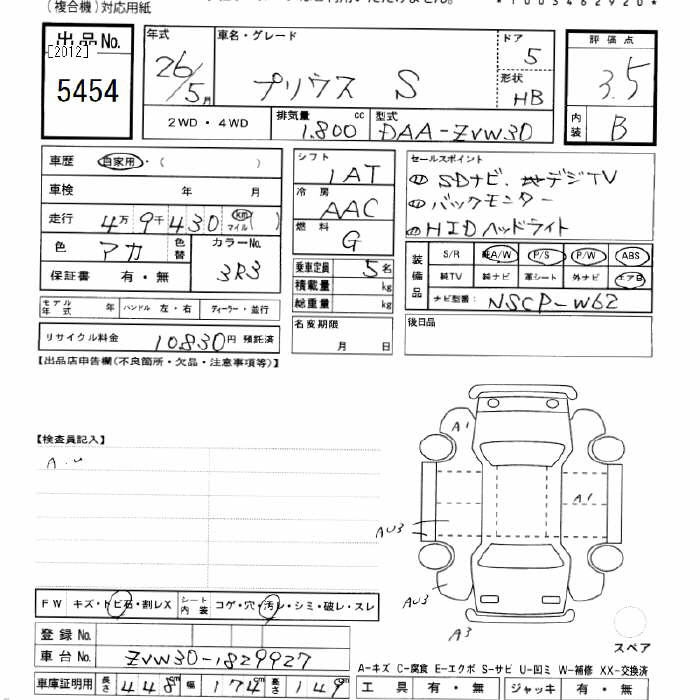 (複合機)対応用紙
*1003462920*
出品No. [2012] 5454
年式 26/5月
車名・グレード プリウス S
ドア 5
形状 HB
評価点 3.5
内装 B
2WD・4WD 排気量 1.800 cc 型式 DAA-ZVW30
車歴 自家用・( )
車検 年 月
走行 4万9千430 km(マイル)
色 アカ 色替 カラーNo. 3R3
保証書 有・無
シフト IAT
冷房 AAC
燃料 G
乗車定員 5名
積載量 kg
総重量 kg
名変期限 月 日
セールスポイント
① SDナビ、デジTV
② バックモニター
③ HIDヘッドライト
装備品 S/R 純A/W P/S P/W ABS
純TV 純ナビ 革シート 外ナビ エアB
ナビ型番: NSCP-W62
後日品
モデル年式 年 ハンドル 左・右 ディーラー・並行
リサイクル料金 10830円 預託済
【出品店申告欄(不良箇所・欠品・注意事項等)】
【検査員記入】
A1
A1
AU3
AU3
A3
スペア
FW キズ・トビ石・割レX シート内装 コゲ・穴・汚レ・シミ・破レ・スレ
登録No.
車台No. ZVW30-1829927
車庫証明用 長さ 448cm 幅 174cm 高さ 149cm
A-キズ C-腐食 E-エクボ S-サビ U-凹ミ W-補修 XX-交換済
工具 有・無 ジャッキ 有・無